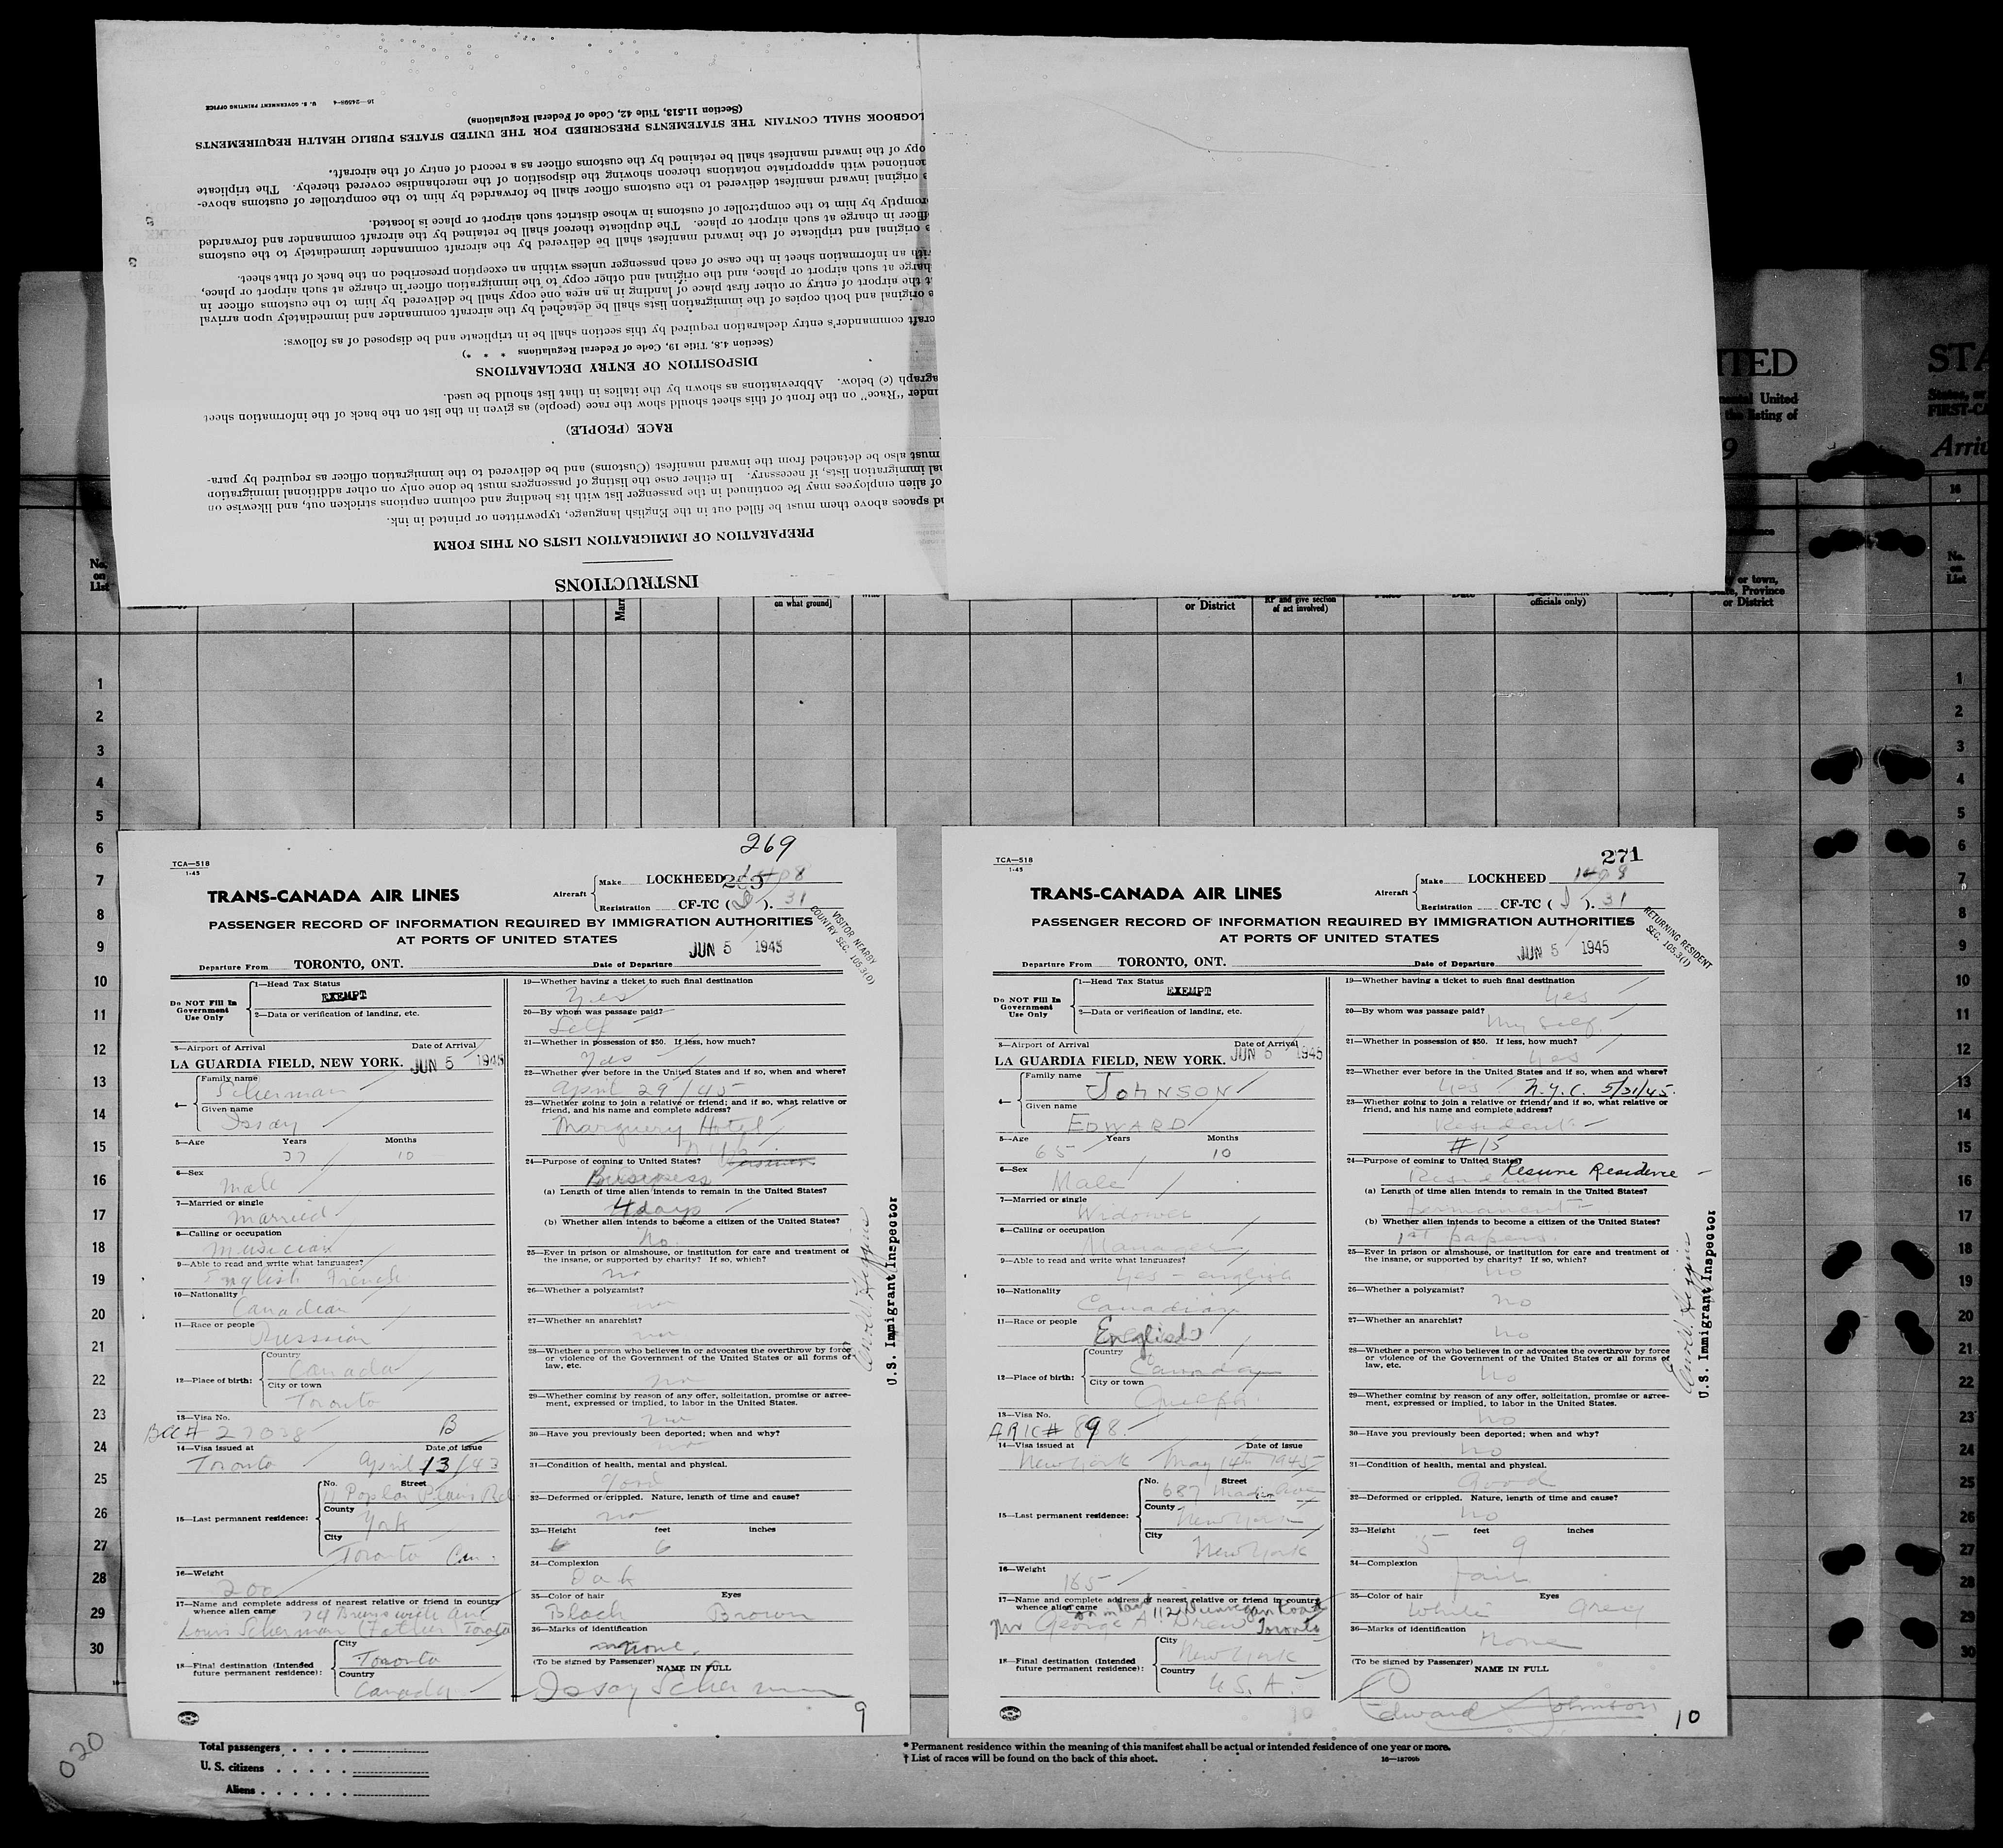 INSTRUCTIONS
PREPARATION OF IMMIGRATION LISTS ON THIS FORM
nd spaces above them must be filled out in the English language, typewritten or printed in ink.
of alien employees may be continued in the passenger list with its heading and column captions stricken out, and likewise on
nal immigration lists, if necessary. In either case the listing of passengers must be done only on other additional immigration
must also be detached from the inward manifest (Customs) and be delivered to the immigration officer as required by para-
agraph (c) below. Abbreviations as shown by the italics in that list should be used.
RACE (PEOPLE)
nder "Race" on the front of this sheet should show the race (people) as given in the list on the back of the information sheet
DISPOSITION OF ENTRY DECLARATIONS
(Section 4.8, Title 19, Code of Federal Regulations * * *)
craft commander's entry declaration required by this section shall be in triplicate and be disposed of as follows:
e original and both copies of the immigration lists shall be detached by the aircraft commander and immediately upon arrival
t the airport of entry or other first place of landing in an area one copy shall be delivered by him to the customs officer in
charge at such airport or place, and the original and other copy to the immigration officer in charge at such airport or place,
ith an information sheet in the case of each passenger unless within an exception prescribed on the back of that sheet.
e original and triplicate of the inward manifest shall be delivered by the aircraft commander immediately to the customs
fficer in charge at such airport or place. The duplicate thereof shall be retained by the aircraft commander and forwarded
romptly by him to the comptroller of customs in whose district such airport or place is located.
e original inward manifest delivered to the customs officer shall be forwarded by him to the comptroller of customs above-
mentioned with appropriate notations thereon showing the disposition of the merchandise covered thereby. The triplicate
opy of the inward manifest shall be retained by the customs officer as a record of entry of the aircraft.
LOGBOOK SHALL CONTAIN THE STATEMENTS PRESCRIBED FOR THE UNITED STATES PUBLIC HEALTH REQUIREMENTS
(Section 11.513, Title 42, Code of Federal Regulations)
16—24598-4 U. S. GOVERNMENT PRINTING OFFICE
ITED
United
the listing of
9
STA
States, or
FIRST-C
Arriv
16
No. on List
on what ground]
or District
RP and give section
of act involved)
officials only)
or town,
Province
or District
No. on List
1
2
3
4
5
6
7
8
9
10
11
12
13
14
15
16
17
18
19
20
21
22
23
24
25
26
27
28
29
30
269
TCA—518
1-45
TRANS-CANADA AIR LINES
Aircraft
Make LOCKHEED 1408
Registration CF-TC ( ). 31
PASSENGER RECORD OF INFORMATION REQUIRED BY IMMIGRATION AUTHORITIES
AT PORTS OF UNITED STATES
VISITOR NEARBY
COUNTRY SEC. 105.3(0)
JUN 5 1945
Departure From TORONTO, ONT. Date of Departure
Do NOT Fill In
Government
Use Only
1—Head Tax Status
EXEMPT
2—Data or verification of landing, etc.
3—Airport of Arrival Date of Arrival
LA GUARDIA FIELD, NEW YORK. JUN 5 1945
4—
Family name
Scherman
Given name
Issay
5—Age Years Months
37 10
6—Sex
male
7—Married or single
married
8—Calling or occupation
musician
9—Able to read and write what languages?
English French
10—Nationality
Canadian
11—Race or people
Russsian
12—Place of birth:
Country
Canada
City or town
Toronto
13—Visa No.
BCC# 27028 B
14—Visa issued at Date of issue
Toronto April 13/43
15—Last permanent residence:
No. Street
11 Poplar Plains Rd
County
York
City
Toronto Can.
16—Weight
200
17—Name and complete address of nearest relative or friend in country
whence alien came 74 Brunswick Ave
Louis Scherman (Father) Toronto
18—Final destination (Intended
future permanent residence):
City
Toronto
Country
Canada
19—Whether having a ticket to such final destination
Yes
20—By whom was passage paid?
Self
21—Whether in possession of $50. If less, how much?
Yes
22—Whether ever before in the United States and if so, when and where?
April 29/45
23—Whether going to join a relative or friend; and if so, what relative or
friend, and his name and complete address?
Marguery Hotel
24—Purpose of coming to United States?
Business
(a) Length of time alien intends to remain in the United States?
4 days
(b) Whether alien intends to become a citizen of the United States?
No.
25—Ever in prison or almshouse, or institution for care and treatment of
the insane, or supported by charity? If so, which?
no
26—Whether a polygamist?
no
27—Whether an anarchist?
no
28—Whether a person who believes in or advocates the overthrow by force
or violence of the Government of the United States or all forms of
law, etc.
no
29—Whether coming by reason of any offer, solicitation, promise or agree-
ment, expressed or implied, to labor in the United States.
no
30—Have you previously been deported; when and why?
no
31—Condition of health, mental and physical.
Good
32—Deformed or crippled. Nature, length of time and cause?
no
33—Height feet inches
6 6
34—Complexion
Dark
35—Color of hair Eyes
Black Brown
36—Marks of identification
none
(To be signed by Passenger) NAME IN FULL
Issay Scherman
U.S. Immigrant Inspector
9
271
TCA—518
1-45
TRANS-CANADA AIR LINES
Aircraft
Make LOCKHEED 1408
Registration CF-TC ( ). 31
PASSENGER RECORD OF INFORMATION REQUIRED BY IMMIGRATION AUTHORITIES
AT PORTS OF UNITED STATES
RETURNING RESIDENT
SEC. 105.3(1)
JUN 5 1945
Departure From TORONTO, ONT. Date of Departure
Do NOT Fill In
Government
Use Only
1—Head Tax Status
EXEMPT
2—Data or verification of landing, etc.
3—Airport of Arrival Date of Arrival
LA GUARDIA FIELD, NEW YORK. JUN 5 1945
4—
Family name
JOHNSON
Given name
EDWARD
5—Age Years Months
65 10
6—Sex
Male
7—Married or single
Widower
8—Calling or occupation
Manager
9—Able to read and write what languages?
Yes - english
10—Nationality
Canadian
11—Race or people
English
12—Place of birth:
Country
Canada
City or town
Guelph.
13—Visa No.
ARIC# 898.
14—Visa issued at Date of issue
New York May 14th 1945
15—Last permanent residence:
No. Street
687 Madison Ave
County
New York
City
New York
16—Weight
165
17—Name and complete address of nearest relative or friend in country
whence alien came son in law 112 Dunvegan Road
Mr George A Drew Toronto
18—Final destination (Intended
future permanent residence):
City
New York
Country
U.S.A.
19—Whether having a ticket to such final destination
Yes
20—By whom was passage paid?
My Self.
21—Whether in possession of $50. If less, how much?
Yes
22—Whether ever before in the United States and if so, when and where?
Yes N.Y.C. 5/31/45.
23—Whether going to join a relative or friend; and if so, what relative or
friend, and his name and complete address?
Resident
#15
24—Purpose of coming to United States?
Resident Resume Residence
(a) Length of time alien intends to remain in the United States?
permanent
(b) Whether alien intends to become a citizen of the United States?
1st papers.
25—Ever in prison or almshouse, or institution for care and treatment of
the insane, or supported by charity? If so, which?
no
26—Whether a polygamist?
no
27—Whether an anarchist?
no
28—Whether a person who believes in or advocates the overthrow by force
or violence of the Government of the United States or all forms of
law, etc.
no
29—Whether coming by reason of any offer, solicitation, promise or agree-
ment, expressed or implied, to labor in the United States.
no
30—Have you previously been deported; when and why?
no
31—Condition of health, mental and physical.
Good
32—Deformed or crippled. Nature, length of time and cause?
no
33—Height feet inches
5 9
34—Complexion
fair
35—Color of hair Eyes
White Grey
36—Marks of identification
none
(To be signed by Passenger) NAME IN FULL
Edward Johnson
U.S. Immigrant Inspector
10
020
Total passengers
U. S. citizens
Aliens
* Permanent residence within the meaning of this manifest shall be actual or intended residence of one year or more.
† List of races will be found on the back of this sheet.